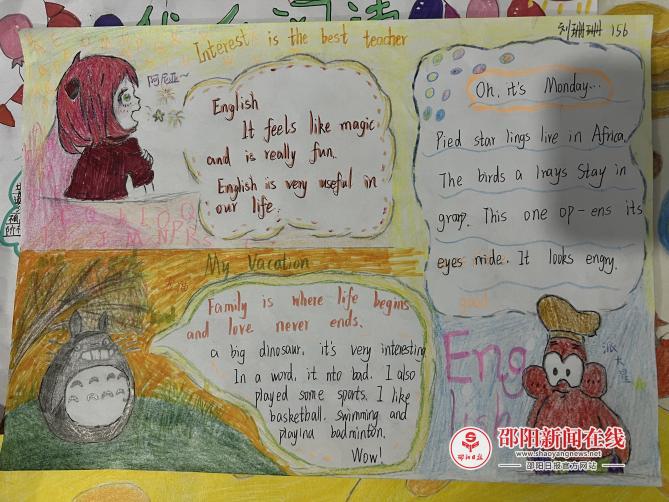 刘珊珊 156
Interest is the best teacher
阿尼亚~
English
It feels like magic
and is really fun.
English is very useful in
our life.
Oh, it's Monday...
Pied star lings live in Africa.
The birds a lrays stay in
grarp. This one op-ens its
eyes mide. It looks engry.
My Vacation
Family is where life begins
and love never ends.
a big dinosaur, it's very interesting
In a word, it nto bad. I also
played some sports. I like
basketball, swimming and
playing badminton.
Wow!
English
派大星
邵阳日报
邵阳新闻在线
www.shaoyangnews.net
邵阳日报官方网站